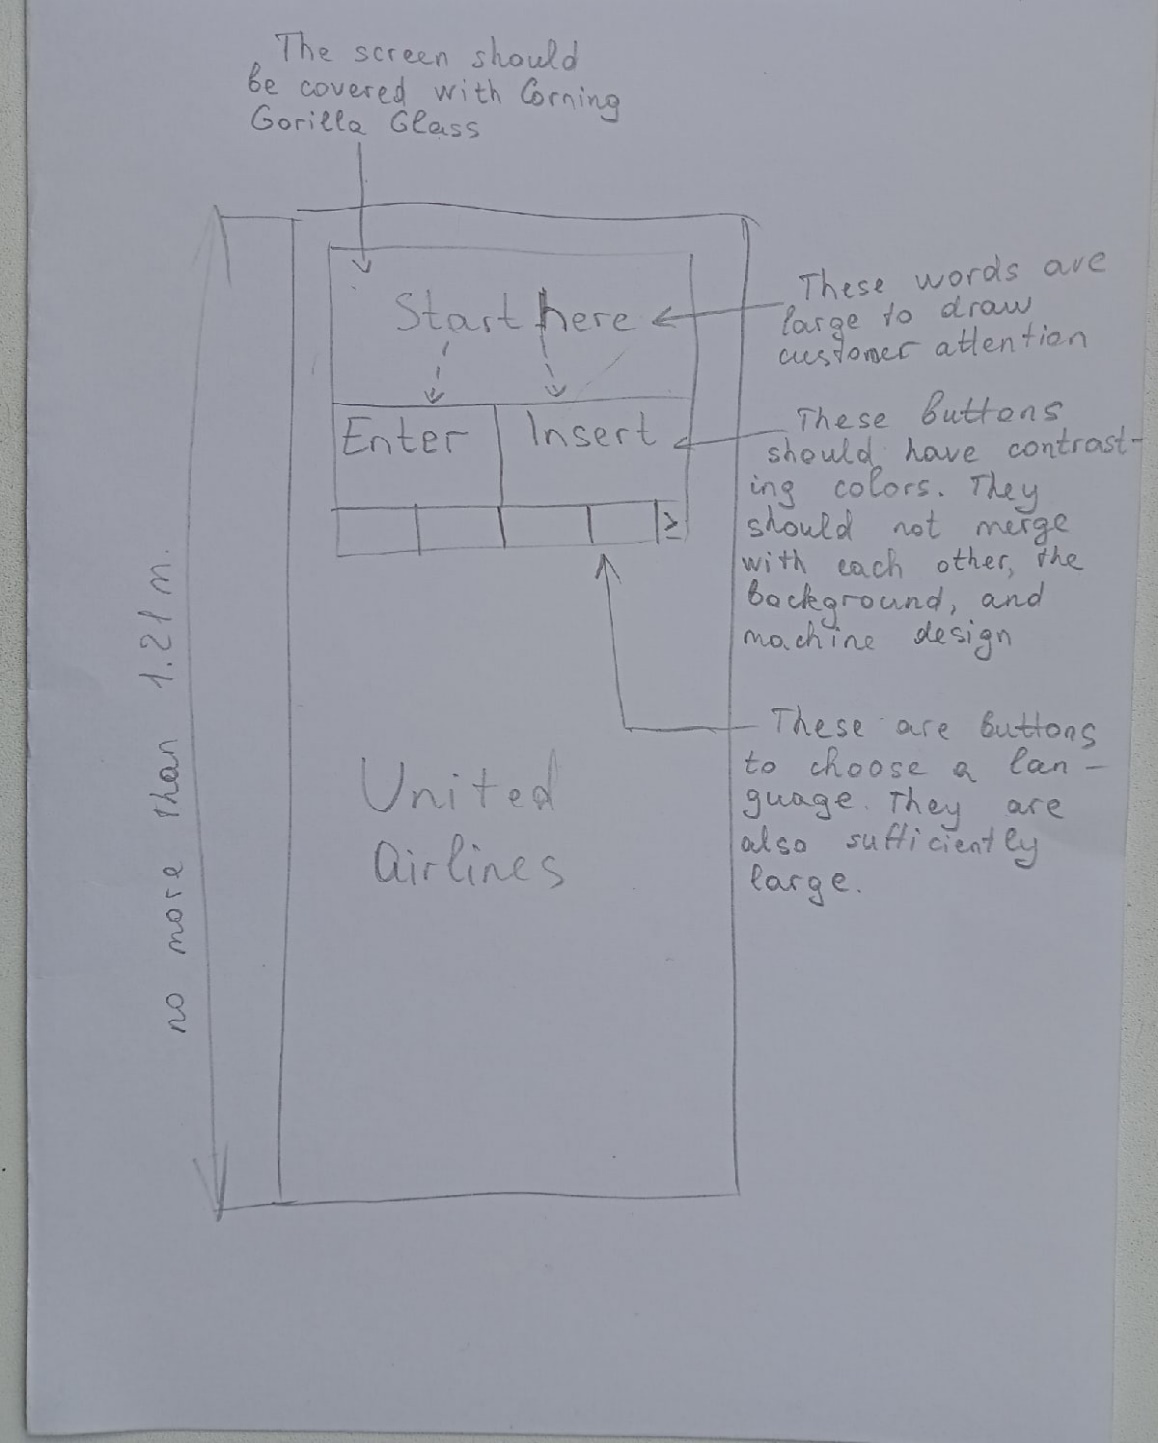 The screen should
be covered with Corning
Gorilla Glass
Start here
These words are
large to draw
customer attention
Enter
Insert
These buttons
should have contrast-
ing colors. They
should not merge
with each other, the
background, and
machine design
no more than 1.21 m.
These are buttons
to choose a lan-
guage. They are
also sufficiently
large.
United
airlines